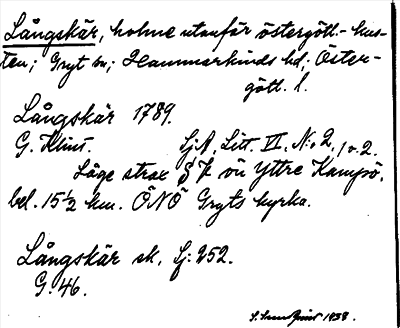 Långskär, holme utanför östergött.- kus-
ten; Gryt sn; Hammarkinds hd; Öster-
götl. l.
Långskär 1789.
G. Klint. Sj.A, Litt. VI, N:o 2, 1 o. 2.
Läge strax S om Yttre Kampö,
bel. 15½ km. ÖNÖ Gryts kyrka.
Långskär sk. Sj: 252.
G. 46.
1938.